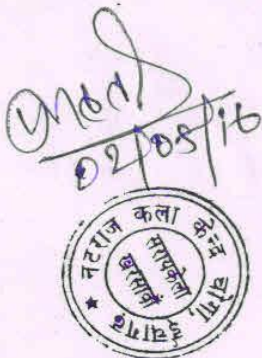 02/05/16
★ नटराज कला केन्द्र चोगा, ईचागढ़
सरायकेला
खरसावाँ